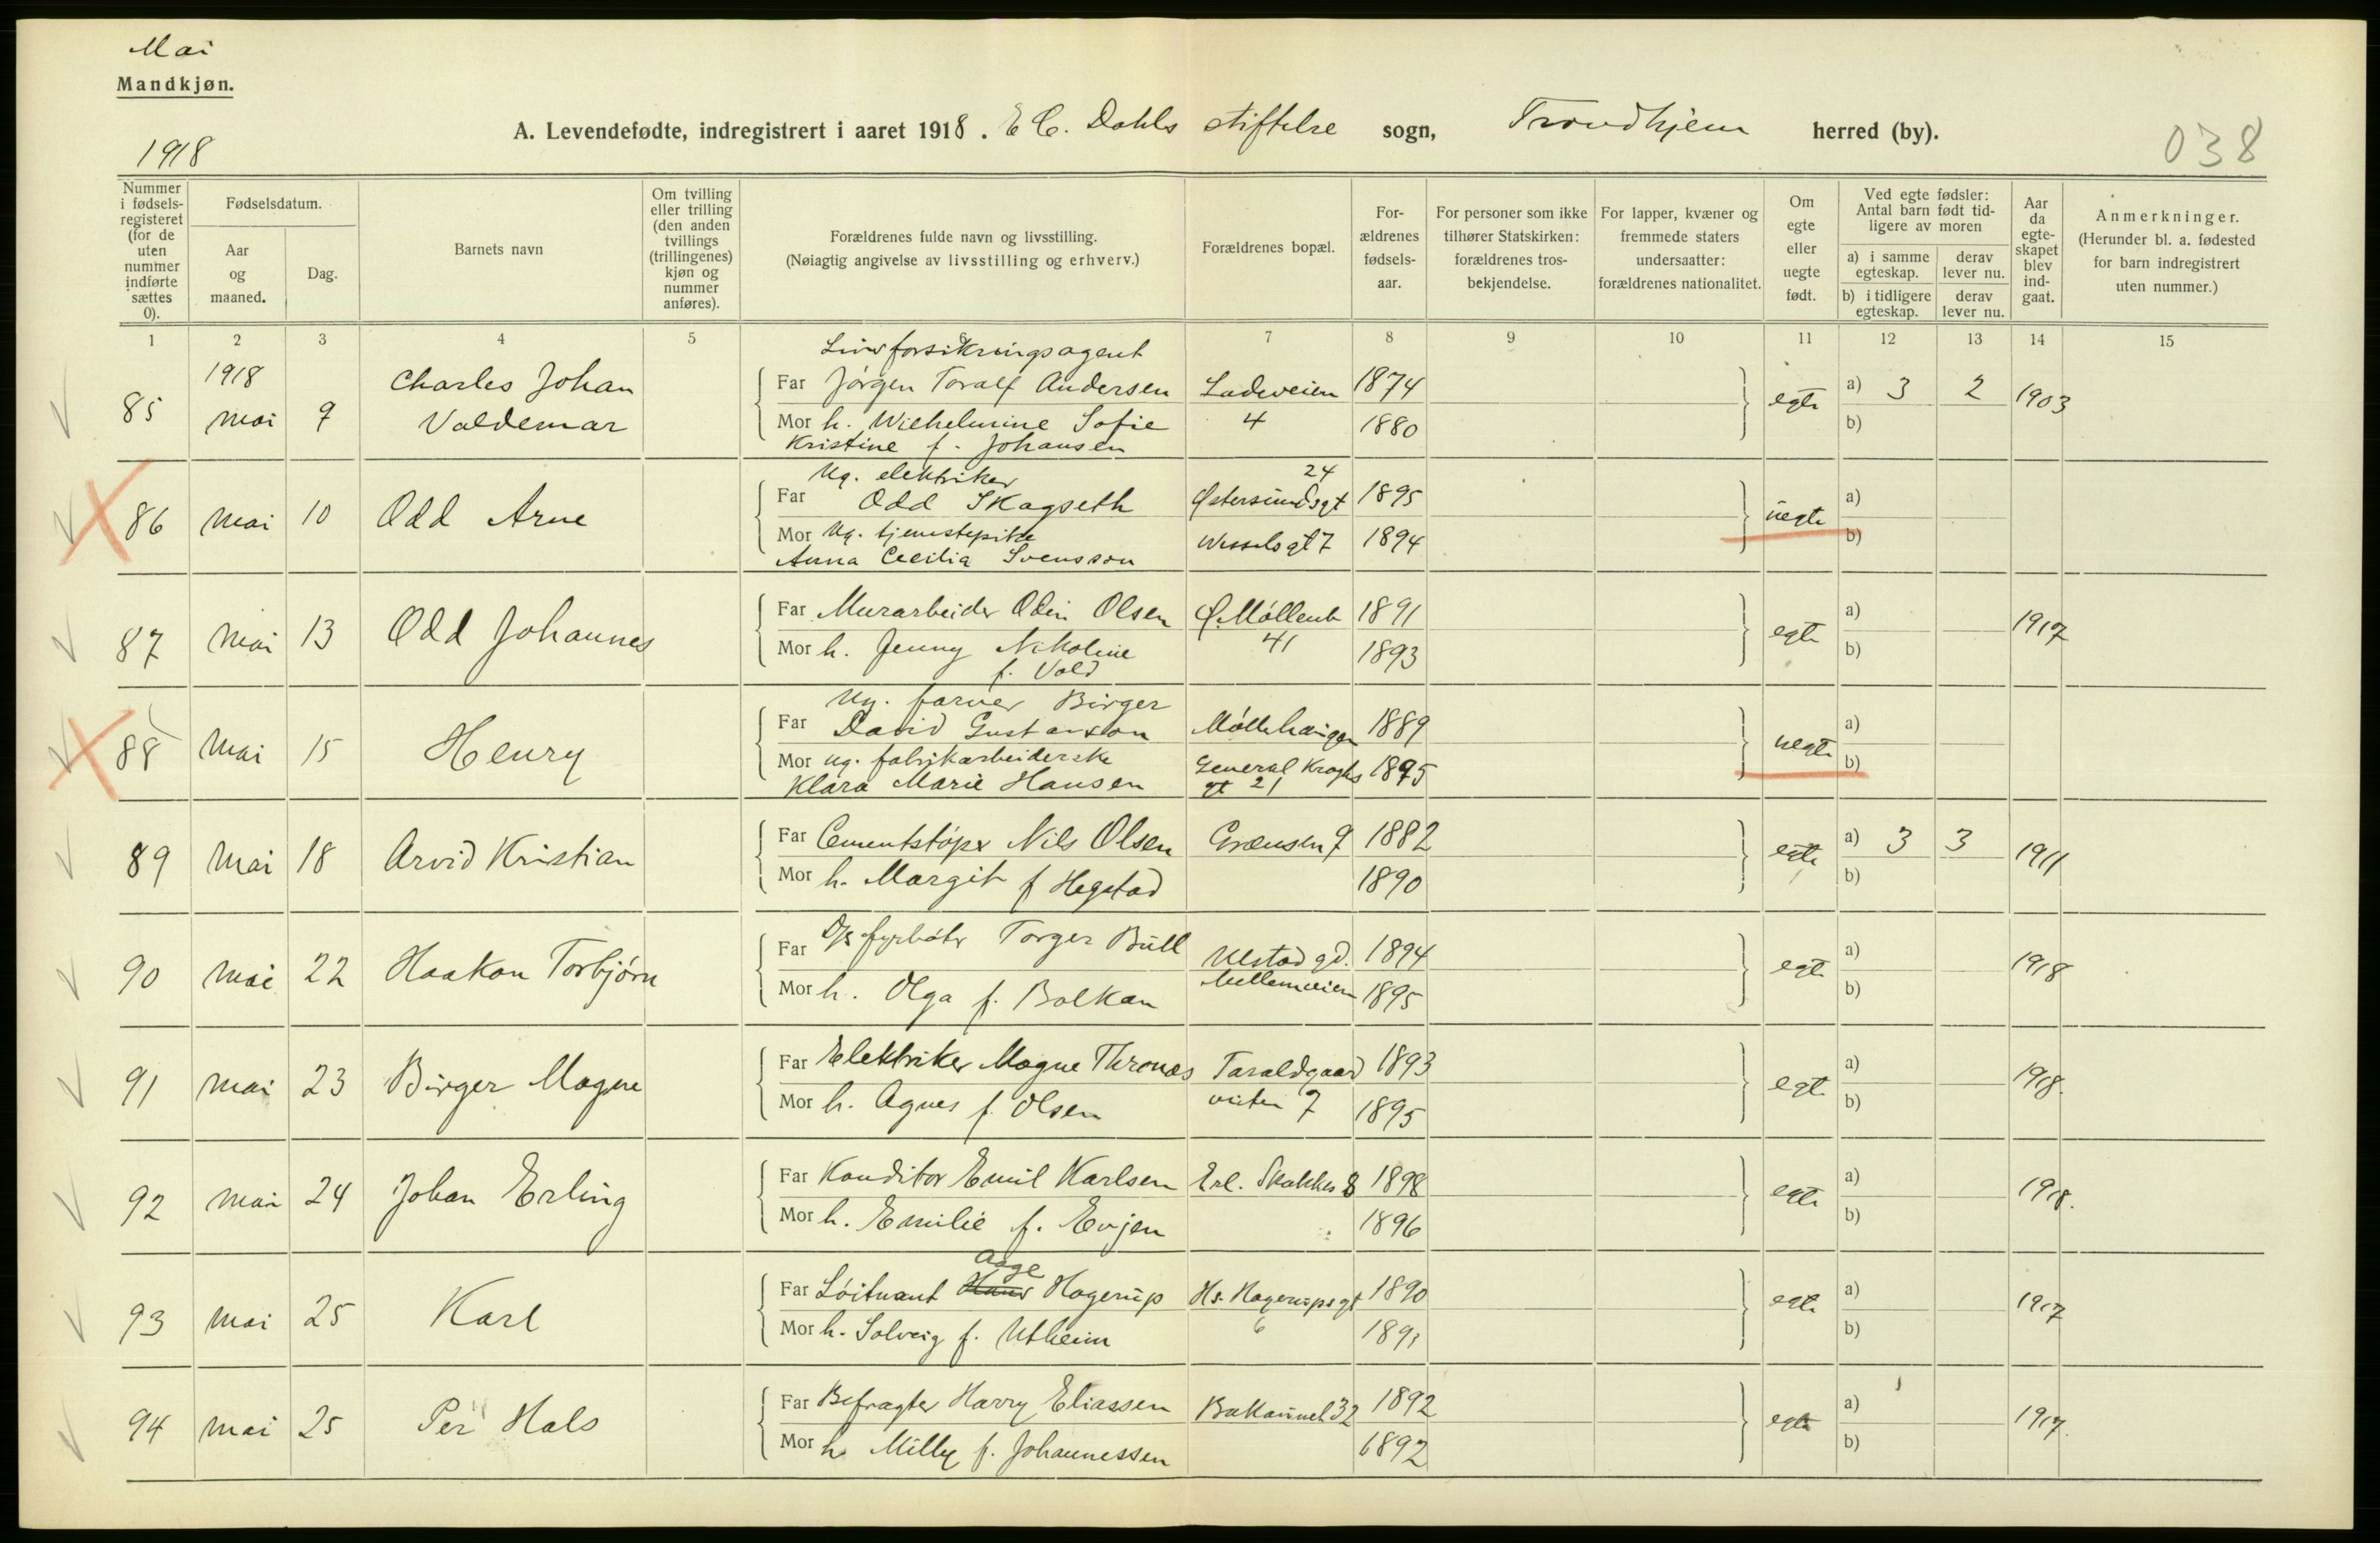 Mai
Mandkjøn.
A. Levendefødte, indregistrert i aaret 1918. E C. Dahls stiftelse sogn, Trondhjem herred (by).
1918
038
Nummer i fødsels-registeret (for de uten nummer indførte sættes 0).
Fødselsdatum.
Aar og maaned.
Dag.
Barnets navn
Om tvilling eller trilling (den anden tvillings (trillingenes) kjøn og nummer anføres).
Forældrenes fulde navn og livsstilling.
(Nøiagtig angivelse av livsstilling og erhverv.)
Forældrenes bopæl.
For-ældrenes fødsels-aar.
For personer som ikke tilhører Statskirken: forældrenes tros-bekjendelse.
For lapper, kvæner og fremmede staters undersaatter: forældrenes nationalitet.
Om egte eller uegte født.
Ved egte fødsler: Antal barn født tid-ligere av moren
a) i samme egteskap.
derav lever nu.
b) i tidligere egteskap.
derav lever nu.
Aar da egte-skapet blev ind-gaat.
Anmerkninger.
(Herunder bl. a. fødested for barn indregistrert uten nummer.)
1 2 3 4 5 6 7 8 9 10 11 12 13 14 15
Livsforsikringsagent
85 1918 mai 9 Charles Johan Valdemar Far Jørgen Toralf Andersen Ladeveien 4 1874 egte a) 3 2 1903
Mor h. Wilhelmine Sofie 1880 b)
Kristine f. Johansen
Ug. elektriker 24
86 mai 10 Odd Arne Far Odd Skagseth Østersundsgt 1895 uegte a)
Mor Ug. tjenestepike Wesselsgt 7 1894 b)
Anna Cecilia Svensson
87 mai 13 Odd Johannes Far Murarbeider Odin Olsen Ø. Møllenb 41 1891 egte a) 1917
Mor h. Jenny Nikoline 1893 b)
f. Vold
Ug. farver Birger
88 mai 15 Henry Far David Gustavson Møllehaugen 1889 uegte a)
Mor ug. fabrikarbeiderske General Kroghs 1895 b)
Klara Marie Hansen gt 21
89 mai 18 Arvid Kristian Far Cementstøper Nils Olsen Grænsen 9 1882 egte a) 3 3 1911
Mor h. Margit f Hegstad 1890 b)
90 mai 22 Haakon Torbjørn Far D/s fyrbøter Torger Bull Ulstad gd. 1894 egte a) 1918
Mor h. Olga f. Bolkan Mellemveien 1895 b)
91 mai 23 Birger Magne Far Elektriker Magne Thronæs Taraldgaard 1893 egte a) 1918.
Mor h. Agnes f. Olsen veiten 7 1895 b)
92 mai 24 Johan Erling Far Konditor Emil Karlsen Erl. Skakkes 8 1898 egte a) 1918.
Mor h. Emilie f. Evjen 1896 b)
Aage
93 mai 25 Karl Far Løitnant Hans Hagerup Hs. Hagerupsgt 1890 egte a) 1917
Mor h. Solveig f. Utheim 6 1891 b)
94 mai 25 Per Hals Far Befragter Harry Eliassen Bakaunet 32 1892 egte a) 1917.
Mor h Milly f. Johannessen 1892 b)